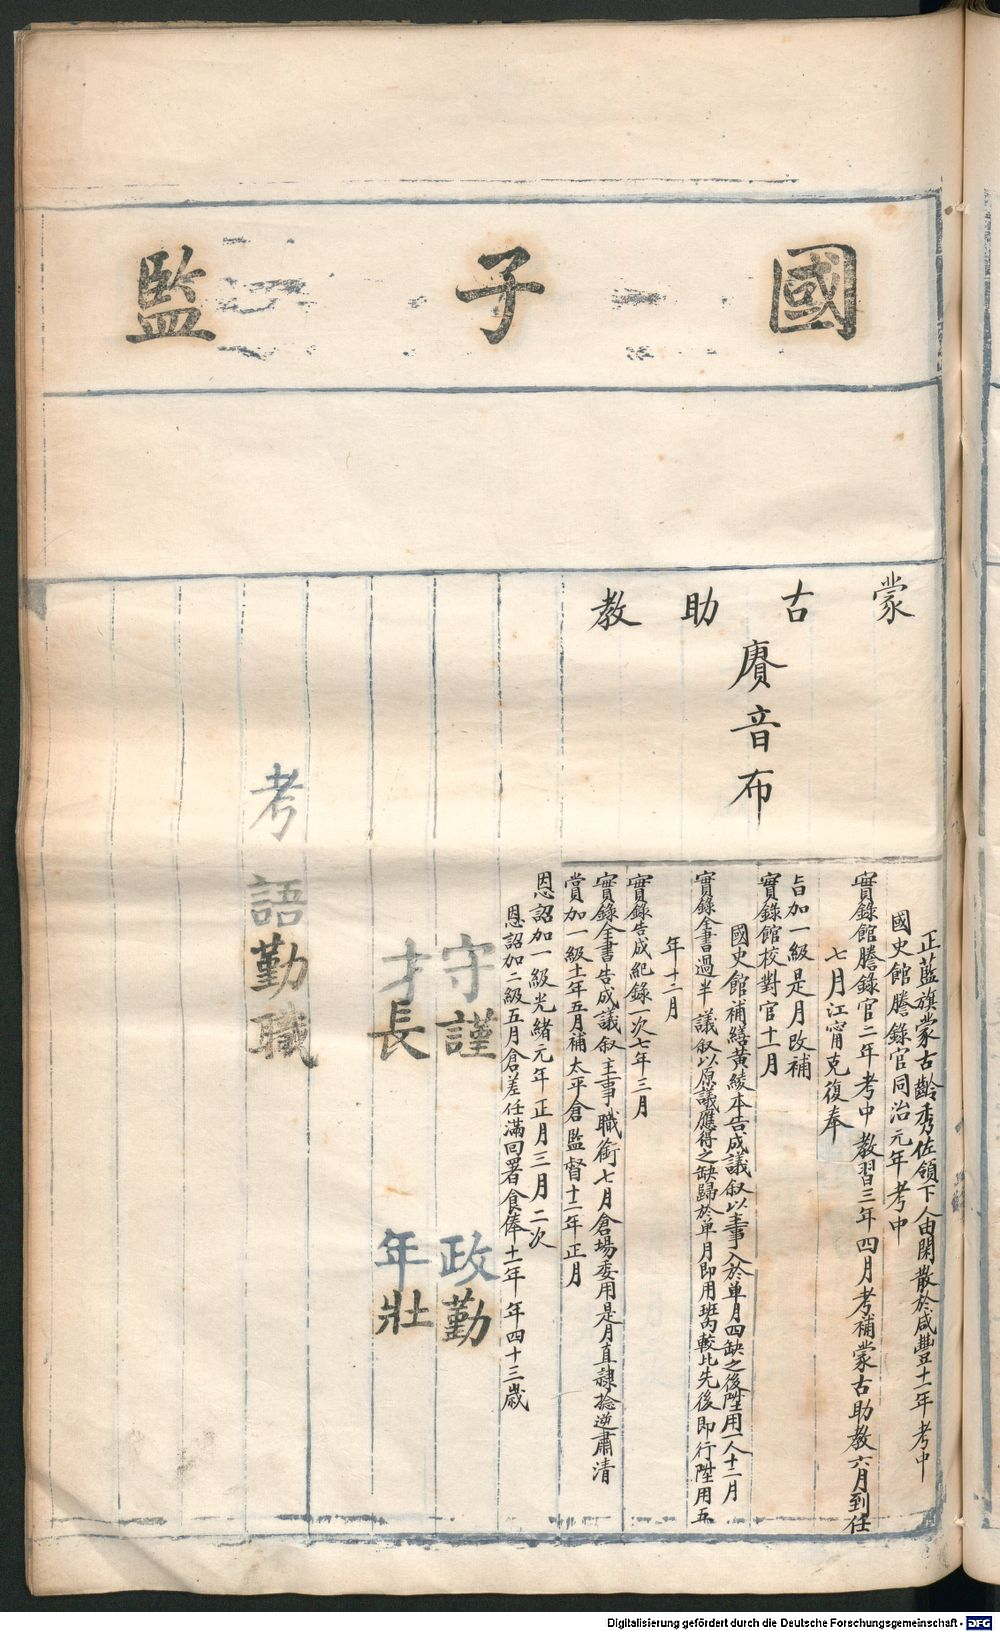 國子監
蒙古助教
賡音布
正藍旗蒙古齡秀佐領下人由閑散於咸豐十一年考中
國史館謄錄官同治元年考中
實錄館謄錄官二年考中教習三年四月考補蒙古助教六月到任
七月江甯克復奉
旨加一級是月改補
實錄館校對官十一月
國史館補繕黃綾本告成議叙以主事入於單月四缺之後陞用一人十二月
實錄全書過半議叙以原議應得之缺歸於單月即用班內較比先後即行陞用五
年十二月
實錄告成紀錄一次七年三月
實錄全書告成議叙主事職銜七月倉場委用是月直隸捻逆肅清
賞加一級十一年五月補太平倉監督十二年正月
恩詔加一級光緒元年正月三月二次
恩詔加二級五月倉差任滿回署食俸十一年 年四十三歲
守謹 政勤
才長 年壯
考語勤職
Digitalisierung gefördert durch die Deutsche Forschungsgemeinschaft - DFG